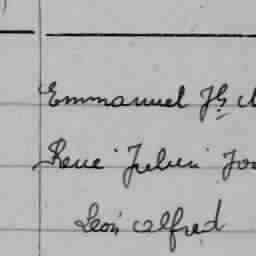 Emmanuel Jh
René Julien
Léon Alfred